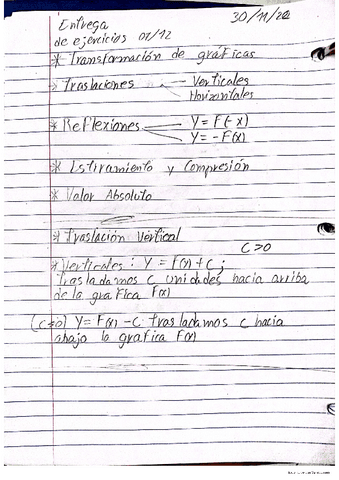 Entrega
30/11/22
de ejercicios 02/12
* Transformación de gráficas
-> Traslaciones — Verticales
— Horizontales
* Reflexiones — Y = F(-x)
— Y = -F(x)
* Estiramiento y Compresión
* Valor Absoluto
* Traslación Vertical
C>0
* Verticales: Y = F(x) + C ;
Trasladamos C unidades hacia arriba
de la gráfica F(x)
Y = F(x) - C trasladamos C hacia
abajo la gráfica F(x)